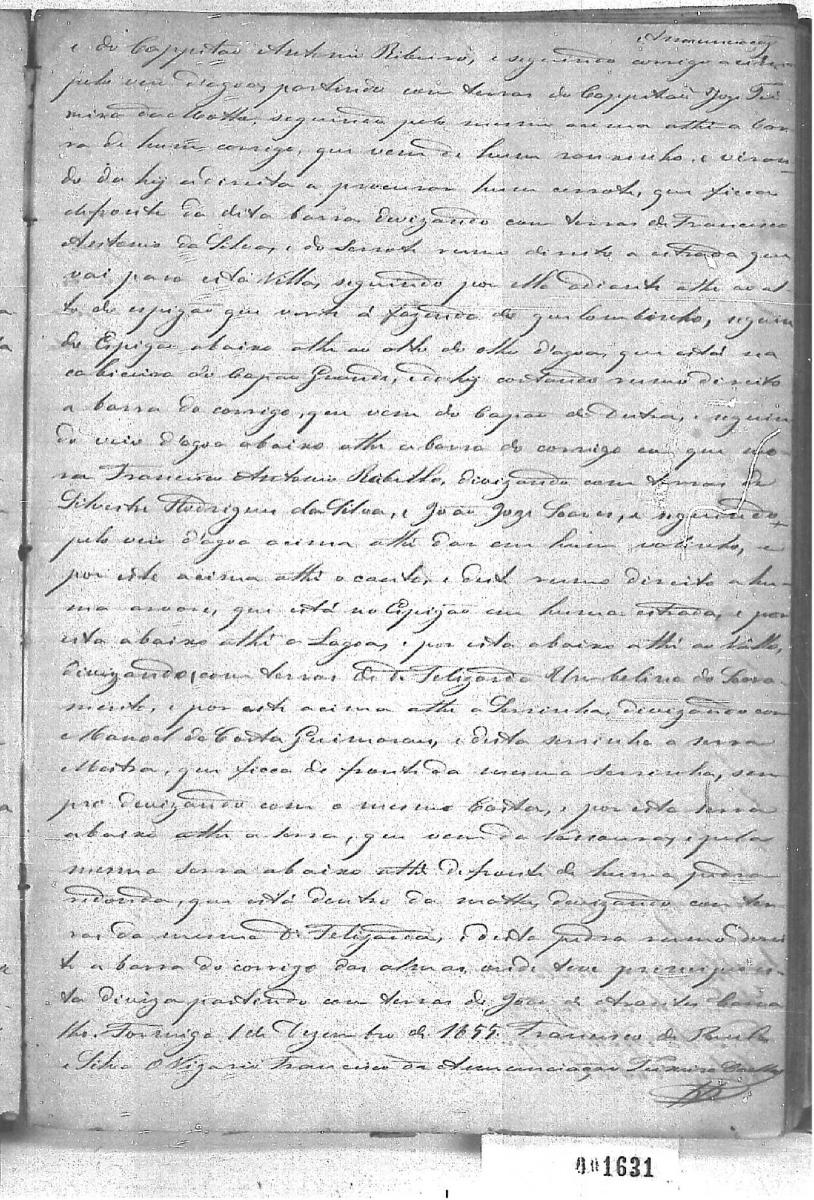 Annunciaçaõ
e do Cappitaõ Antonio Ribeiro, e seguindo corrigo acima
pelo veio d'agoa, partindo com terras do Cappitaõ Joze Fir
mino da Motta, seguindo pelo mesmo acima athé a bar
ra de hum corrigo, que vem de hum ranxinho, e viran
do da hy a direita a procurar hum cerrote, que ficca
defronte da dita barra, devizando com terras de Francisco
Antonio da Silva, e do Serrote rumo direito a estrada que
vai para esta Villa, seguindo por ella adiante athé ao al
to do espigaõ que verte á fazenda do quilombinho, seguin
do Espigaõ abaixo athé ao olho do olho d'agoa, que está na
cabiceira do Capaõ Grande, e dahy cortando rumo direito
a barra do corrigo, que vem do Capaõ de Dutra, e seguin
do veio d'agoa abaixo athé a barra do corrigo em que mo
ra Francisco Antonio Rabello, divizando com terras de
Silvestre Rodrigues da Silva, e João Joze Soares, e seguindo
pelo veio d'agoa acima athé dar em hum vallinho, e
por este acima athé o canto, e deste rumo direito a hu
ma arvore, que está no Espigaõ em huma estrada, e por
esta abaixo athé a Lagoa, e por esta abaixo athé ao Vallo,
divizando com terras de D. Felizarda Umbelina do Sacra
mento, e por este acima athe a Serrinha, divizando com
Manoel da Costa Guimaraes, e desta serrinha a serra
Mestra, que ficca de fronte da mesma serrinha, sem
pre devizando com o mesmo Costa, e por esta serra
abaixo athe a serra, que vem da Vassoura, e pela
mesma serra abaixo athé defronte de huma pedra
redonda, que está dentro da matta, devizando com ter
ras da mesma D. Felizarda, e desta pedra rumo direi
to a barra do corrigo das almas, onde teve principio es
ta diviza partindo com terras de Joze de Arantes Carva
lho. Formiga 1 de Dezembro de 1855. Francisco de Paula
e Silva O Vigario Francisco da Annunciaçaõ Teixeira Coelho
001631